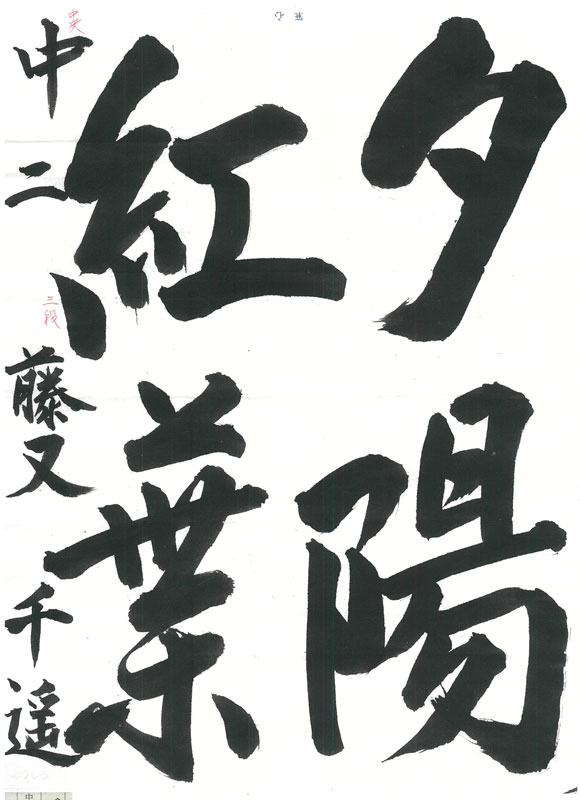 夕陽
紅葉
中二
藤又千遥
中央
三段